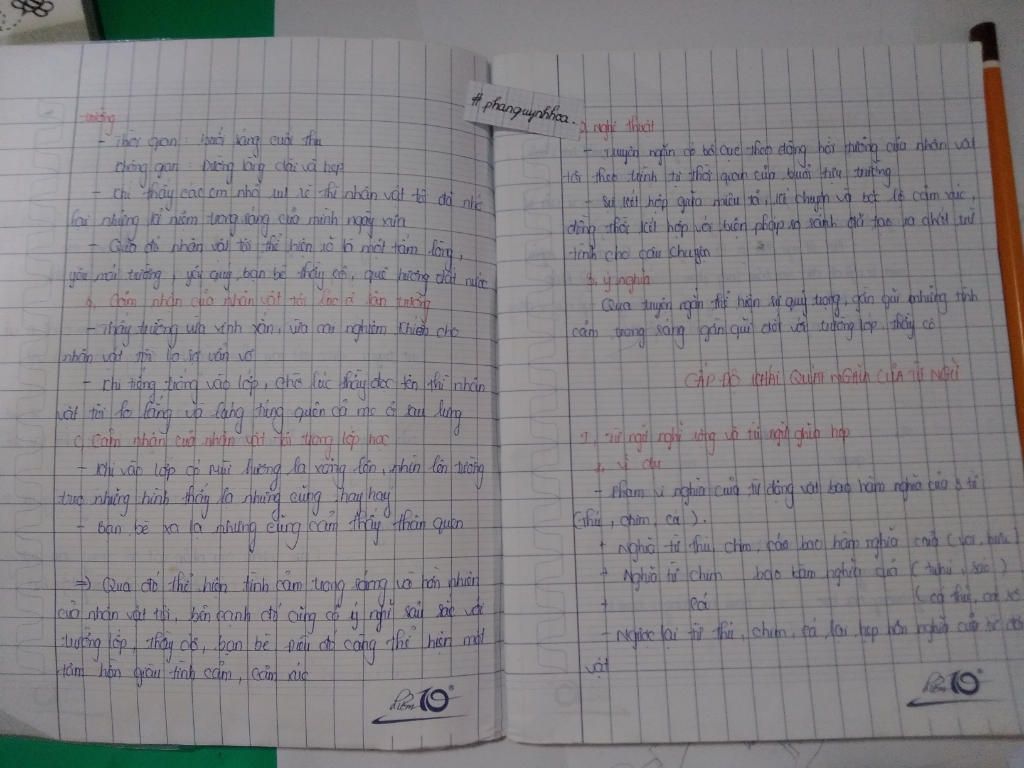 trường
- Thời gian: buổi sáng cuối thu
không gian: Đường làng dài và hẹp
- Khi thấy các em nhỏ rụt rè thì nhân vật tôi đã nhớ
lại những kỉ niệm trong sáng của mình ngày xưa
- Qua đó nhân vật tôi thể hiện rõ là một tấm lòng,
yêu mái trường, yêu quý bạn bè thầy cô, quê hương đất nước
b, Cảm nhận của nhân vật tôi lúc ở sân trường
- Thấy trường vừa xinh xắn, vừa oai nghiêm khiến cho
nhân vật tôi lo sợ vẩn vơ
- Khi tiếng trống vào lớp, chờ lúc thầy đọc tên thì nhân
vật tôi lo lắng và lúng túng quên cả mẹ ở sau lưng
c, Cảm nhận của nhân vật tôi trong lớp học
- Khi vào lớp có mùi hương lạ xông lên, nhìn lên tường
những hình thấy lạ nhưng cũng hay hay
- Bạn bè xa lạ nhưng cũng cảm thấy thân quen
=> Qua đó thể hiện tình cảm trong sáng và hồn nhiên
của nhân vật tôi, bên cạnh đó cũng có ý nghĩ sâu sắc với
trường lớp, thầy cô, bạn bè điều đó càng thể hiện một
tâm hồn giàu tình cảm, cảm xúc
điểm 10
#phanquynhhoa.
2, nghệ thuật
- Truyện ngắn có bố cục theo dòng hồi tưởng của nhân vật
tôi theo trình tự thời gian của buổi tựu trường
- Sự kết hợp giữa miêu tả, kể chuyện và bộc lộ cảm xúc,
đồng thời kết hợp với biện pháp so sánh đã tạo ra chất trữ
tình cho câu chuyện
3, ý nghĩa
Qua truyện ngắn thể hiện sự quý trọng, gần gũi những tình
cảm trong sáng gần gũi đối với trường lớp thầy cô
CẤP ĐỘ KHÁI QUÁT NGHĨA CỦA TỪ NGỮ
I. Từ ngữ nghĩa rộng và từ ngữ nghĩa hẹp
1. Ví dụ
- Phạm vi nghĩa của từ động vật bao hàm nghĩa của 3 từ
(thú, chim, cá).
+ Nghĩa từ thú, bao hàm nghĩa của (voi, hươu)
+ Nghĩa từ chim bao hàm nghĩa của (tu hú, sáo)
+ cá (cá thu, cá rô
- Ngược lại từ thú, chim, cá lại hẹp hơn nghĩa của từ động
vật
điểm 10